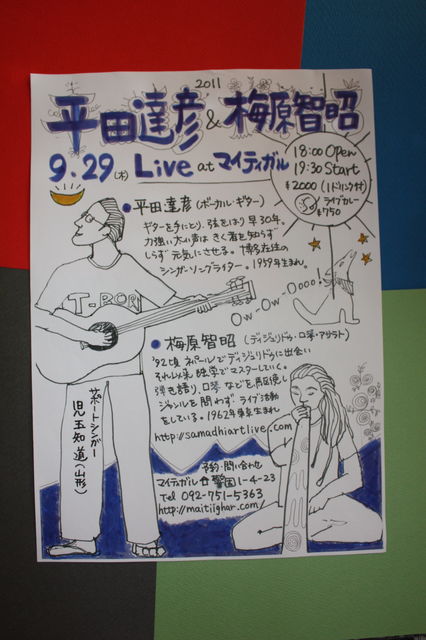 2011
平田達彦 & 梅原智昭
9.29(木) Live at マイティガル
18:00 Open
19:30 Start
¥2000 (1ドリンク付)
ライブカレー
¥750
●平田達彦(ボーカル・ギター)
ギターを手にとり、弦をはり早30年。
力強い太い声は きく者を知らず
しらず 元気にさせる。博多在住の
シンガーソングライター。1959年生まれ。
T-RON
Ow-Ow-Oooo!
●梅原智昭(ディジュリドゥ・口琴・アサラト)
'92頃 ネパールでディジュリドゥに出会い
それ以来 独学でマスターしていく。
弾き語り、口琴 などを駆使し
ジャンルを問わず ライブ活動
をしている。1962年東京生まれ
http://samadhiartlive.com
サポートシンガー
児玉知道(山形)
予約・問い合わせ
マイティガル 警固1-4-23
Tel 092-751-5363
http://maitiighar.com/